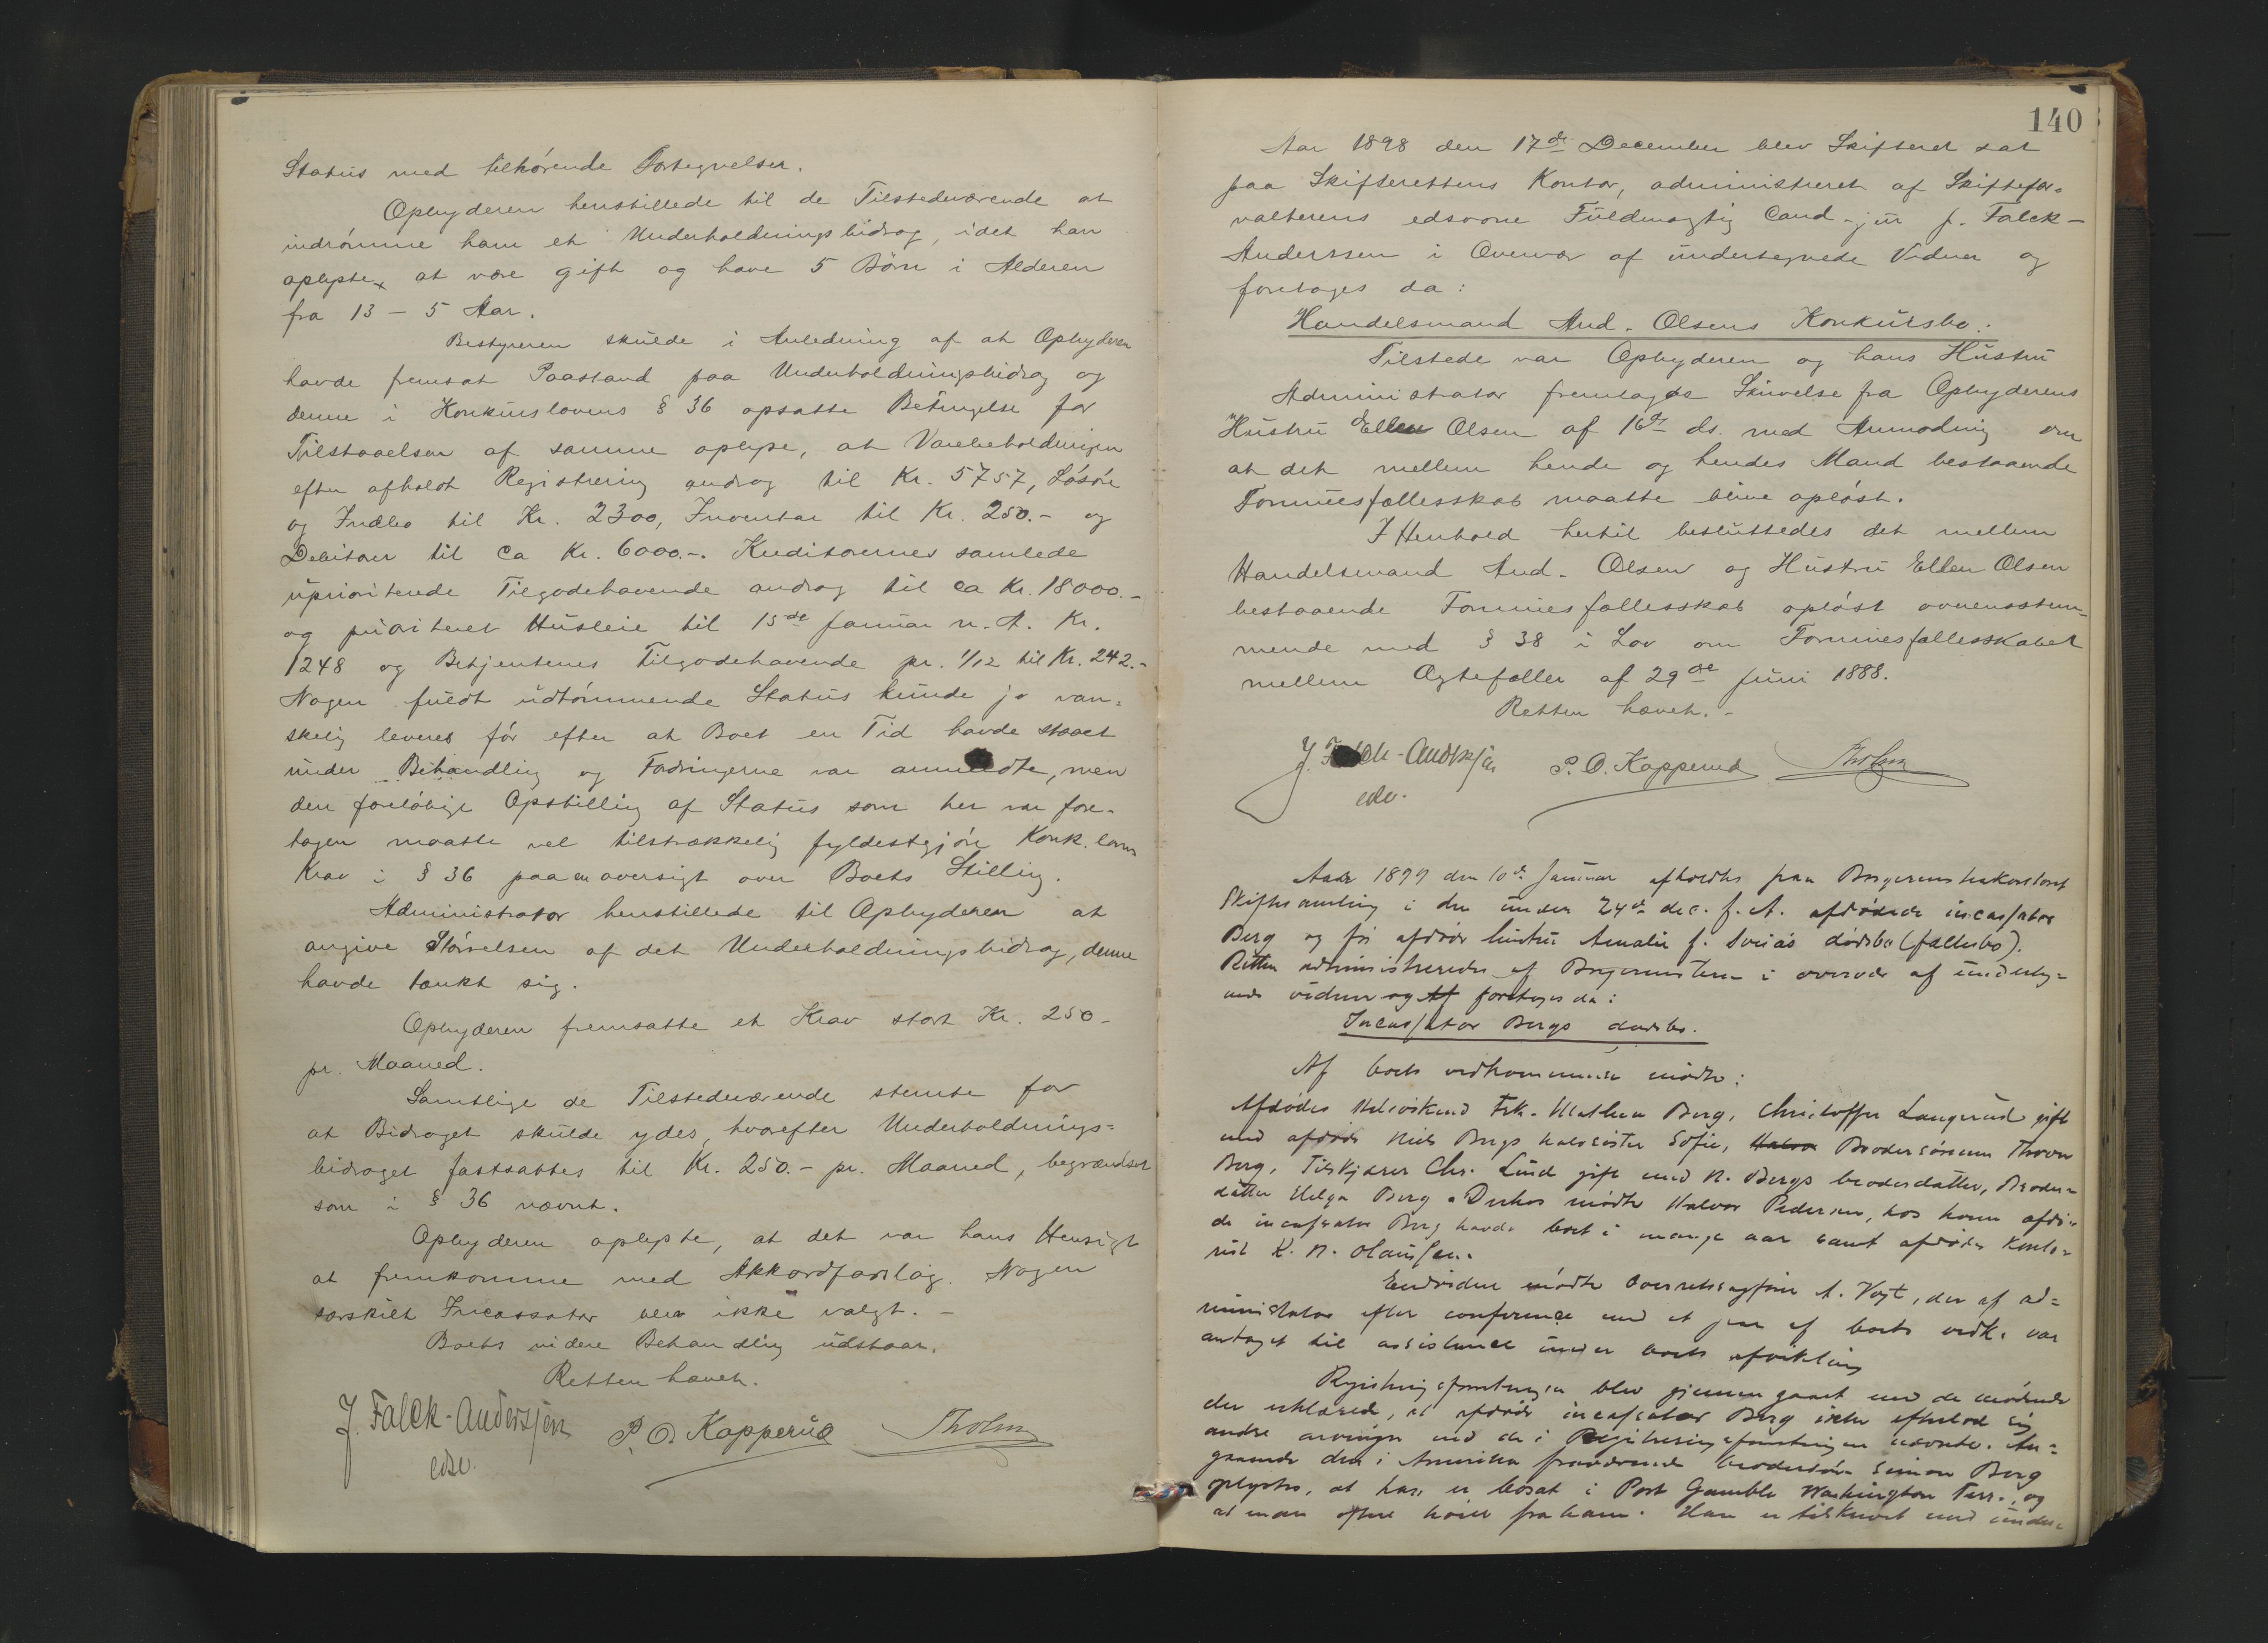 Status med tilhørende Fortegnelser.
Opbyderen henstillede til de Tilstedeværende at
indrømme ham et Underholdningsbidrag, idet han
oplyste, at være gift og have 5 Børn i Alderen
fra 13 – 5 Aar.
Bestyreren skulde i Anledning af at Opbyderen
havde fremsat Paastand paa Underholdningsbidrag og
denne i Konkurslovens § 36 opsatte Betingelse for
Tilstaaelsen af samme oplyse, at Varebeholdningen
efter afholdt Registrering androg til Kr. 5757, Løsøre
og Indbo til Kr. 2300, Inventar til Kr. 250.- og
Debitorer til ca Kr. 6000.-. Kreditorernes samlede
uprioriterede Tilgodehavende androg til ca Kr. 18000.-
og prioriteret Husleie til 15de Januar n. A. Kr.
1248 og Betjentenes Tilgodehavende pr. 1/12 til Kr. 242.-
Nogen fuldt udtømmende Status kunde jo van=
skelig leveres før efter at Boet en Tid havde staaet
under Behandling og Fordringerne var anmeldte, men
den foreløbige Opstilling af Status som her var fore-
tagen maatte vel tilstrækkelig fyldestgjøre Konk. lovens
Krav i § 36 paa en oversigt over Boets Stilling.
Administrator henstillede til Opbyderen at
angive Størrelsen af det Underholdningsbidrag, denne
havde tænkt sig.
Opbyderen fremsatte et Krav stort Kr. 250-
pr. Maaned.
Samtlige de Tilstedeværende stemte for
at Bidraget skulde ydes, hvorefter Underholdnings=
bidraget fastsattes til Kr. 250.- pr. Maaned, begrændset
som i § 36 nævnt.
Opbyderen oplyste, at det var hans Hensigt
at fremkomme med Akkordforslag. Nogen
særskilt Incassator blev ikke valgt. –
Boets videre Behandling udstaar.
Retten hævet.
J. Falck-Anderssen P. O. Kapperud Tholm
edsv.
140
Aar 1898 den 17de December blev Skifteret sat
paa Skifterettens Kontor, administreret af Skiftefor=
valterens edsvorne Fuldmægtig Cand. jur J. Falck-
Anderssen i Overvær af undertegnede Vidner og
foretoges da:
Handelsmand And. Olsens Konkursbo.
Tilstede var Opbyderen og hans Hustru
Administrator fremlagde Skrivelse fra Opbyderens
Hustru Ellen Olsen af 16de ds. med Anmodning om
at det mellem hende og hendes Mand bestaaende
Formuesfællesskab maatte blive opløst.
I Henhold hertil besluttedes det mellem
Handelsmand And. Olsen og Hustru Ellen Olsen
bestaaende Formuesfællesskab opløst overensstem=
mende med § 38 i Lov om Formuesfællesskabet
mellem Ægtefæller af 29de Juni 1888.
Retten hævet. -
J. Falck-Anderssen P. O. Kapperud Tholm
edsv.
Aar 1899 den 10de Januar afholdtes paa Borgermesterkontoret
Skiftesamling i den under 24de dec. f. A. afdøde incassator
Berg og før afdøde hustru Amalie f. dødsbo (fællesbo).
Retten administreredes af Borgermesteren i overvær af underteg=
nede vidner og foretoges da:
Incassator Bergs dødsbo.
Af boets vedkommende mødte:
Afdødes Halvsøskend Frk. Mathea Berg, Christoffer Langerud gift
med afdøde Niels Bergs halvsøster Sofie, Brodersønnen Thorer
Berg, Chr. Lund gift med N. Bergs broderdatter, Broder=
datter Helga Berg. Derhos mødte Halvor Pedersen, hos hvem afdø=
de incassator Berg havde boet i mange aar samt afdødes Konto=
rist K. N. Olaussen.
Endvidere mødte Overretssagfører A. Vogt, der af ad=
ministrator efter conference med et par af boets vedk. var
antaget til assistance under boets afvikling
Registreringsforretningen blev gjennemgaaet med de mødende
der erklæred, at afdøde incassator Berg ikke efterlod sig
andre arvinger end de i Registreringsforretningen nævnte. An=
gaaende den i Amerika fraværende brodersøn Simon Berg
oplystes, at han er bosat i Port Gamble Washington Terr., og
at man oftere hører fra ham. Han er tilskrevet med under=